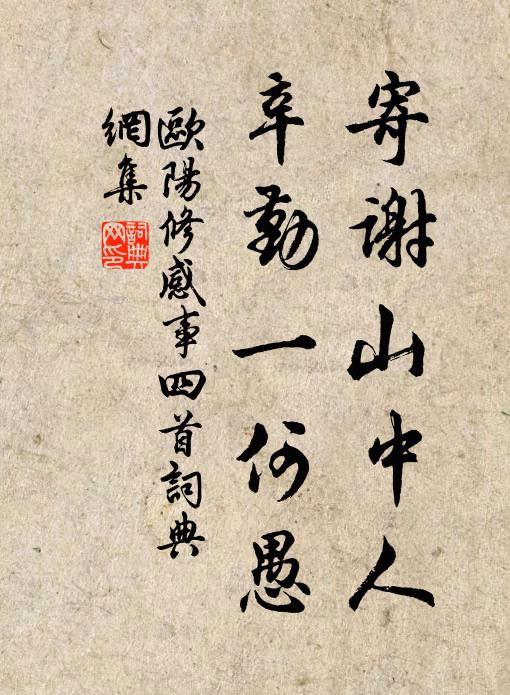 寄謝山中人
辛勤一何愚
歐陽修感事四首詞典
網集
詞典
网印